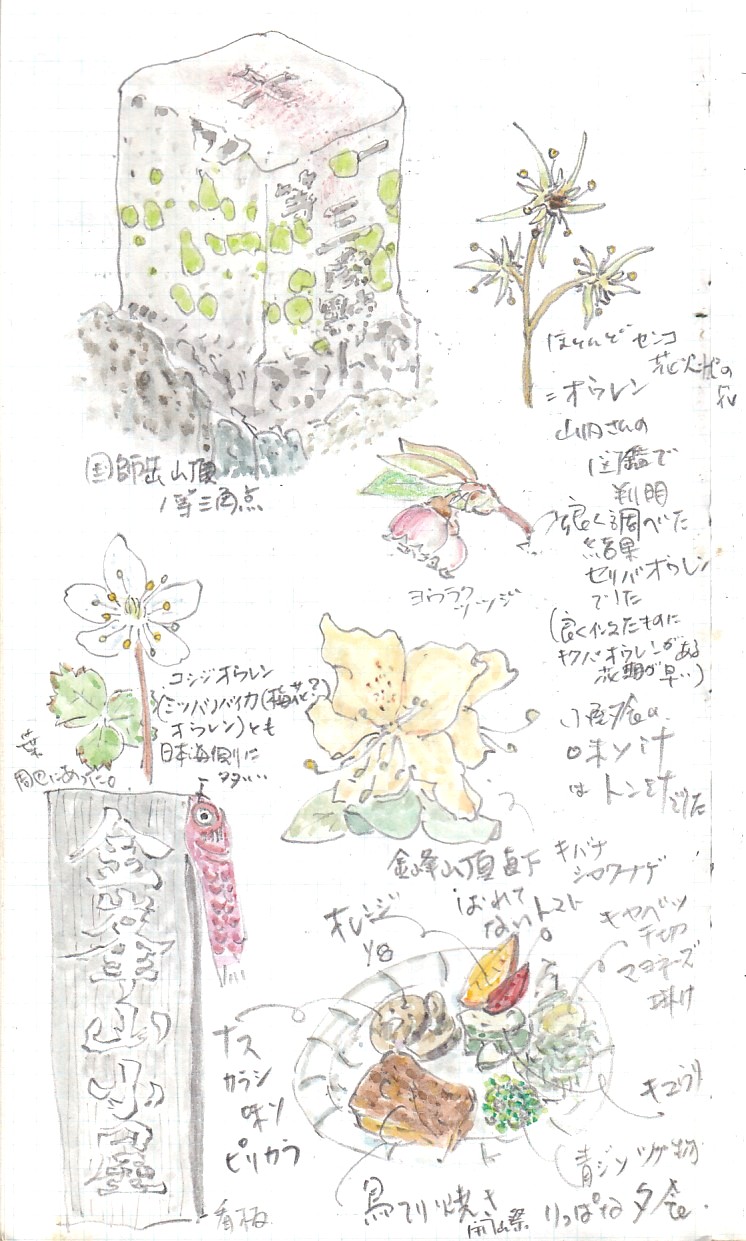 等三角点
国師岳山頂
1等三角点
ほとんどセンコ
花火状の
花
=オウレン
山川さんの
図鑑で
判明
良く調べた
結果
セリバオウレン
でした
(良くにたものに
キクバオウレンがある
花期が早い)
ヨウラク
ツツジ
コシジオウレン
(ミツバノバイカ(梅花?)
オウレン)とも
日本海側に
多い
葉
周辺にあった。
小屋夕食の
味ソ汁
は トン汁でした
キバナ
シャクナゲ
金峰山頂直下
金峰山小屋
=看板
オレンジ
1/8
はぜれて
ないトマト
キャベツ
千切
マヨネーズ
掛け
ナス
カラシ
味ソ
ピリカラ
キュウリ
青ジソツケ物
鳥てり焼き
開山祭
りっぱな夕食.